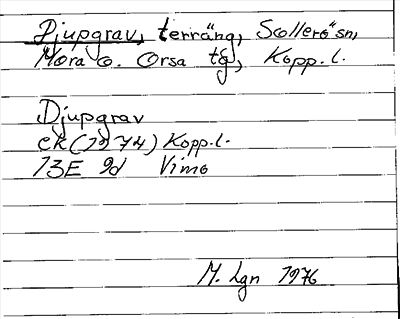 Djupgrav, terräng, Sollerö sn,
Mora o. Orsa tg, Kopp.l.
Djupgrav
ek (1974) Kopp.l.
13E 9d Vimo
M. Lgn 1976